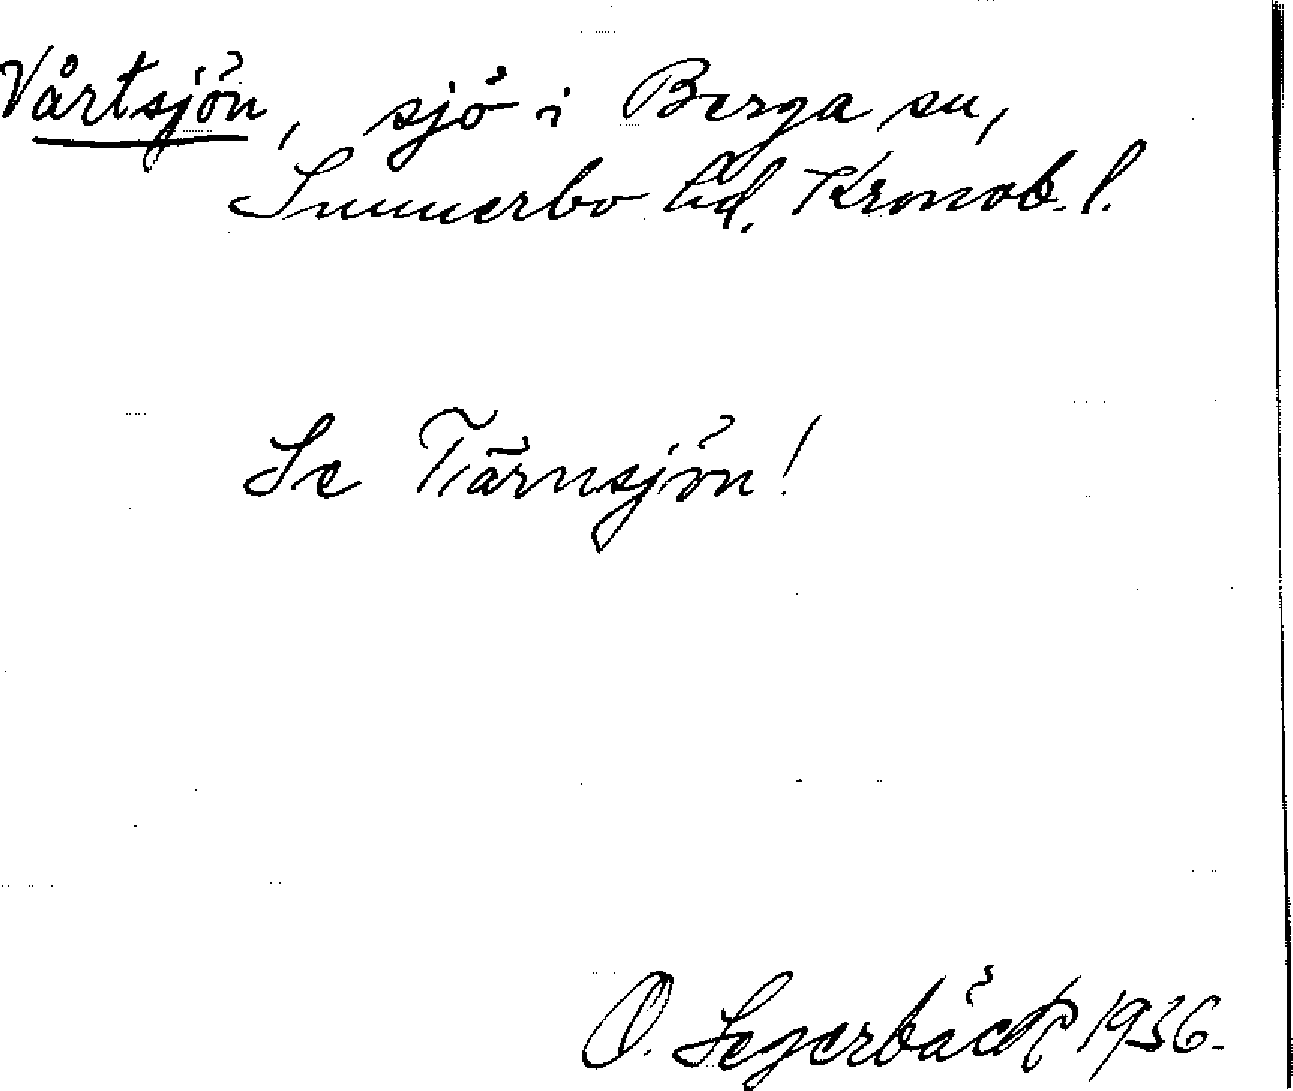 Vårtsjön, sjö i Berga sn,
Sunnerbo hd. Kronob. l.
Se Tärnsjön!
O. Segerbäck 1936.